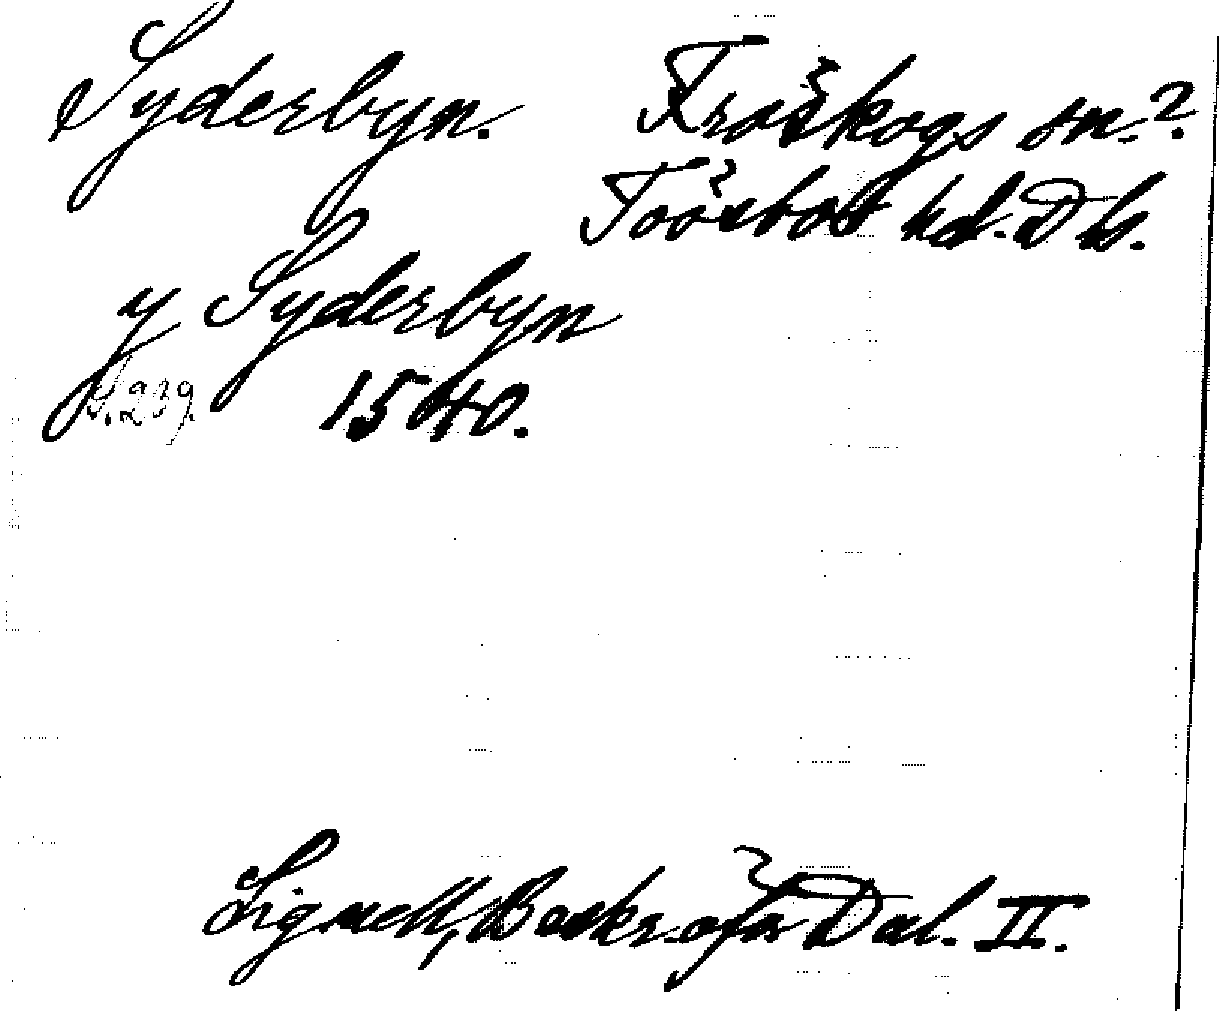 Syderbyn. Fröskogs sn.?
Tössbo hd. Dls.
y Syderbyn
S. 239. 1540.
Lignell, Beskr. öfr Dal. II.